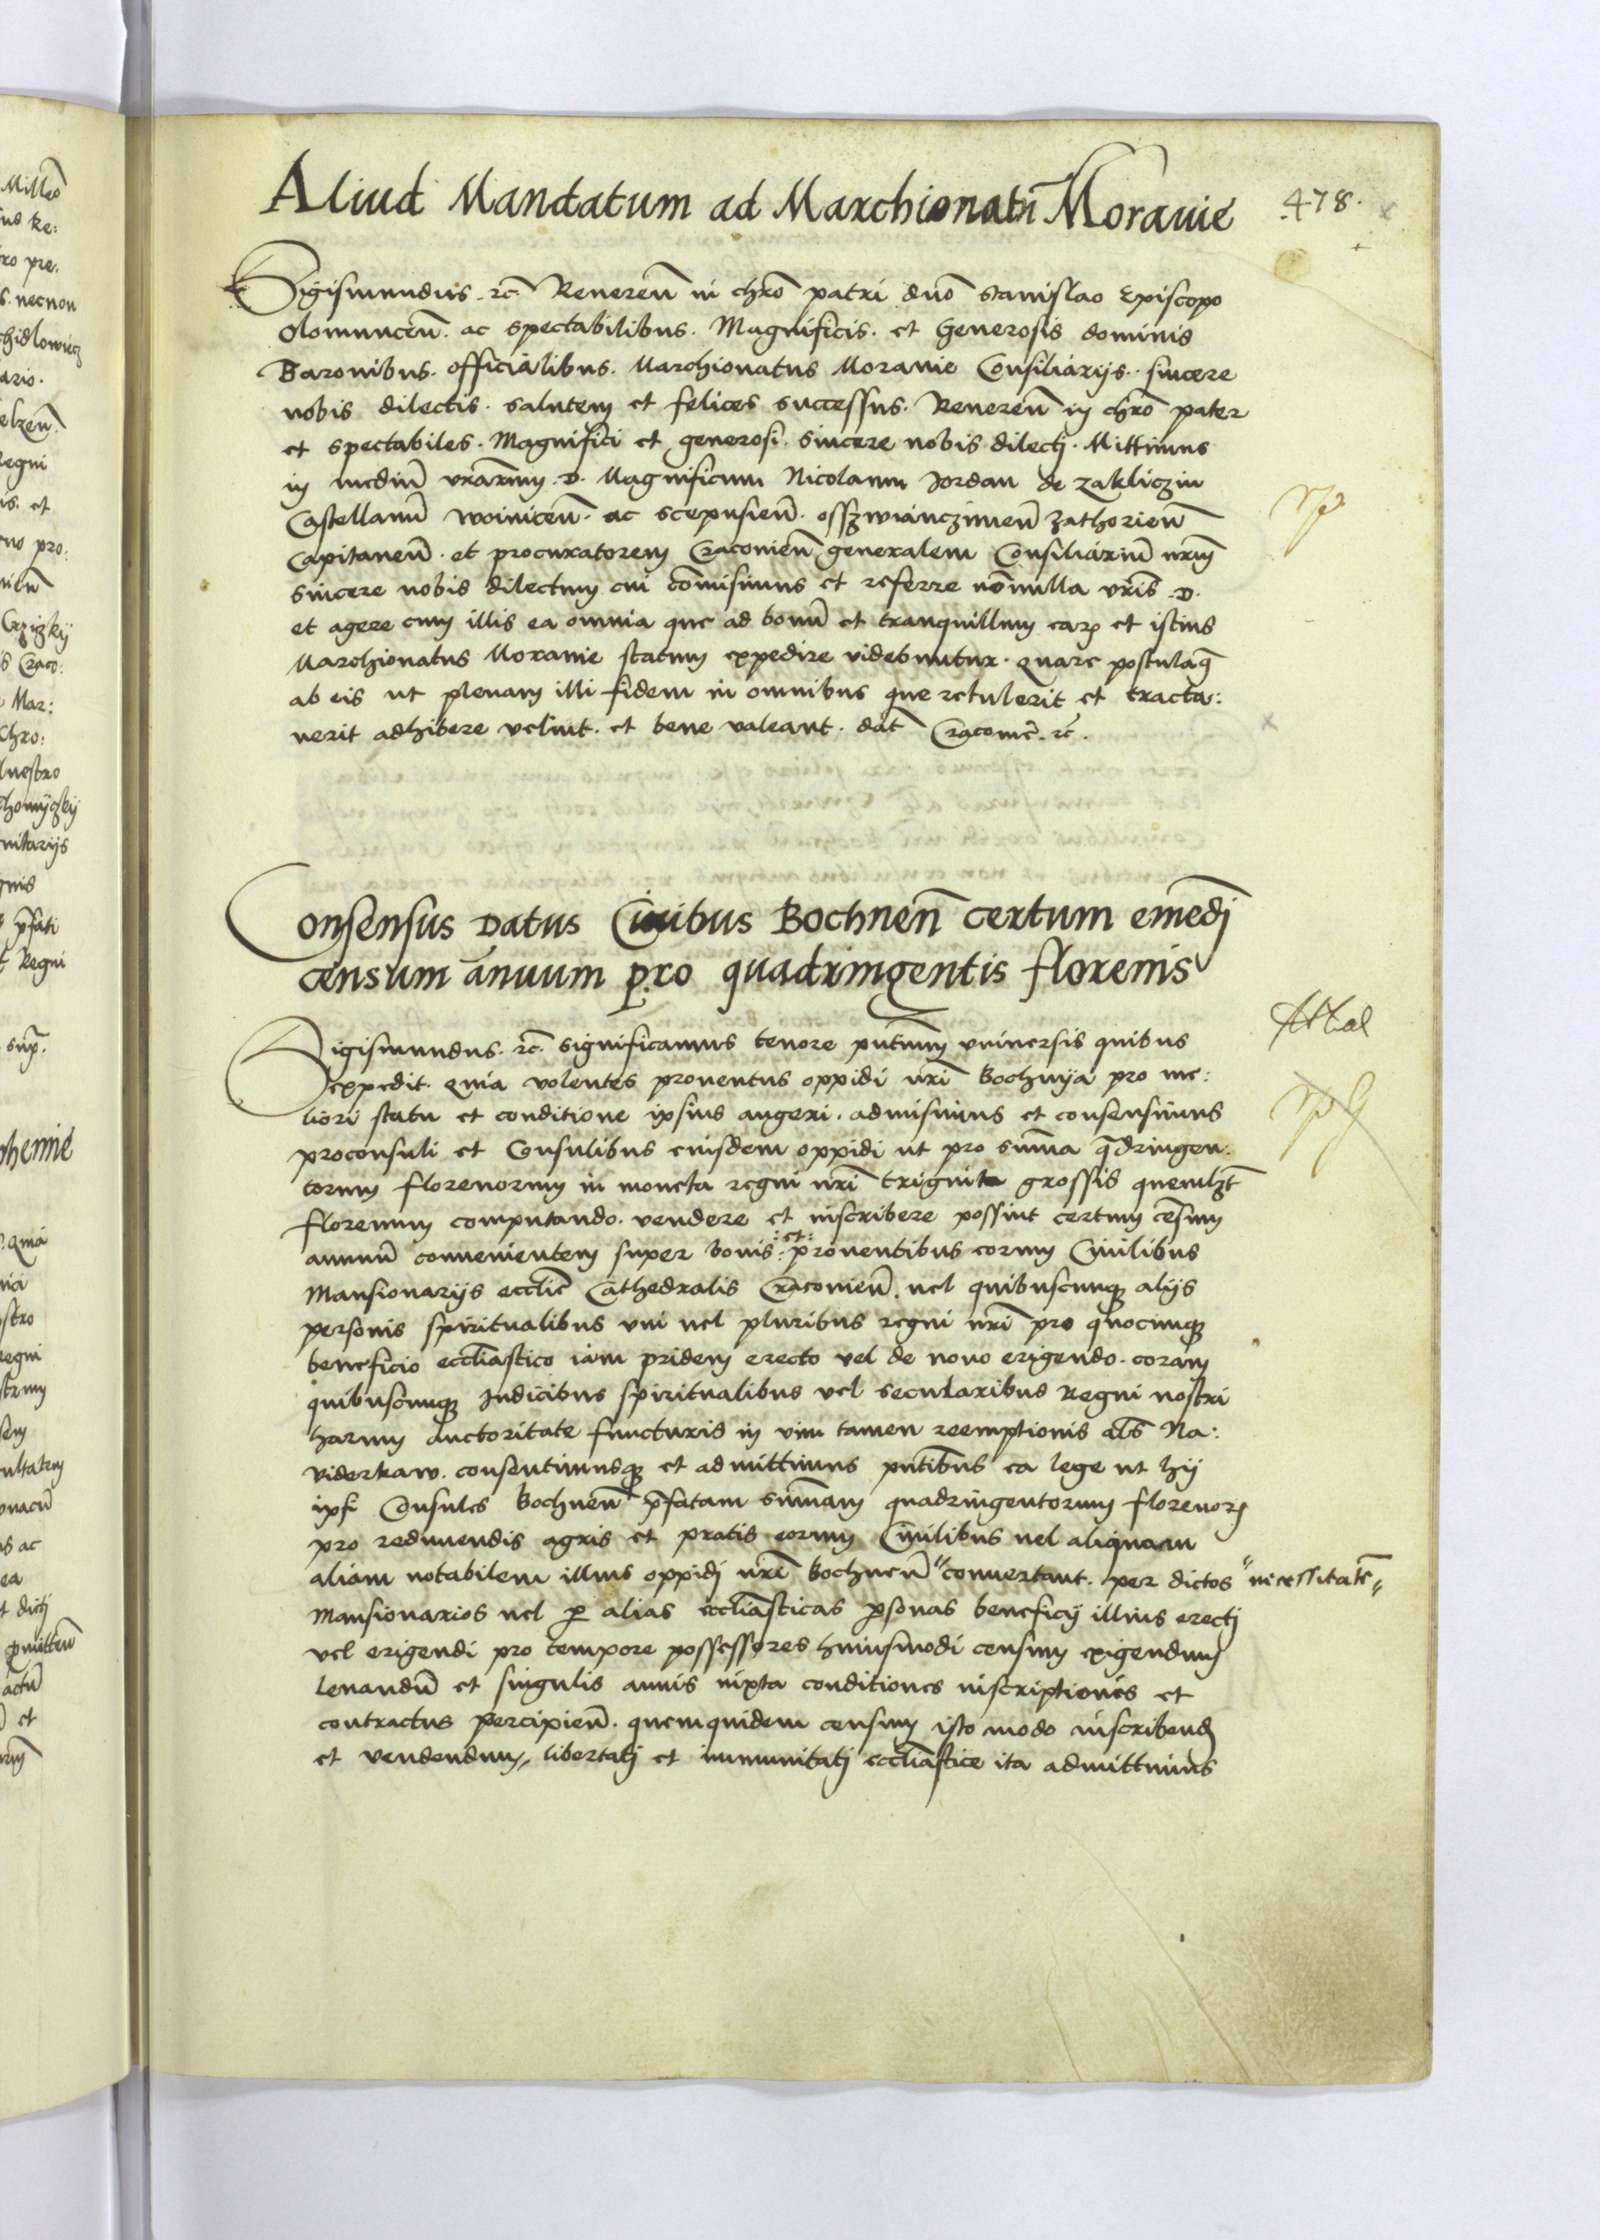 Aliud Mandatum ad Marchionatū Morauie
478.
Sigismundus. rc̄ Reuereñ in chr̄o patri dn̄o Stanislao Episcopo
Olomunceñ. ac spectabilibus. Magnificis. et Generosis dominis
Baronibus. officialibus. Marchionatus Morauie Consiliarijs. sincere
nobis dilectis. salutem et felices successus. Reuereñ in chr̄o pater
et spectabiles. Magnifici et generosi. sincere nobis dilecti. Mittimus
in mediū vr̄arum. D. Magnificum Nicolaum Jordan de Zakliczin
Castellanū woiniceñ. ac scepusieñ. osszwianczimeñ Zathorieñ
Capitaneū. et procuratorem Cracouieñ generalem Consiliariū nr̄m
sincere nobis dilectum cui com̄isimus et referre nōnulla vr̄is. D.
et agere cum illis ea omnia que ad bonū et tranquillum earꝫ et istius
Marchionatus Morauie statum expedire videbuntur. quare postulaꝫ
ab eis ut plenam illi fidem in omnibus que retulerit et tracta:
uerit adhibere velint. et bene valeant. dat̄ Cracouie. rc̄.
Consensus Datus Ciuibus Bochneñ certum emedi
censum ānuum pro quadringentis florenis
Sigismundus. rc̄. significamus tenore pn̄tium vniuersis quibus
expedit. quia volentes prouentus oppidi nr̄i Bochnya pro me:
liori statu et conditione ipsius augeri. admisimus et consensimus
proconsuli et Consulibus eiusdem oppidi ut pro sum̄a q̄dringen:
torum florenorum in moneta regni nr̄i triginta grossis quemlꝫt
florenum computando. vendere et inscribere possint certum cēsum
annuū conuenientem super bonis :et: prouentibus eorum Ciuilibus
Mansionarijs eccl̄ie Cathedralis Cracouieñ. uel quibuscunqꝫ alijs
personis spiritualibus vni uel pluribus regni nr̄i pro quocunqꝫ
beneficio eccl̄iastico iam pridem erecto vel de nouo erigendo. coram
quibuscunqꝫ Iudicibus spiritualibus vel secularibus Regni nostri
harum auctoritate functuris in vim tamen reemptionis al̄s Na:
viderkaw. consentimusqꝫ et admittimus pn̄tibus ea lege ut hij
ipsi Consules Bochneñ p̄fatam sum̄am quadringentorum florenorꝫ
pro redimendis agris et pratis eorum Ciuilibus uel aliquam
aliam notabilem illius oppidi nr̄i Bochneñ " conuertant. per dictos "necessitatē"
Mansionarios uel ꝑ alias eccl̄iasticas ꝑsonas beneficij illius erecti
vel erigendi pro tempore possessores huiusmodi censum exigendum
leuandū et singulis annis iuxta conditiones inscriptionis et
contractus percipieñ. quemquidem censum isto modo inscribendꝫ
et vendendum, libertati et immunitati eccl̄iastice ita admittimus